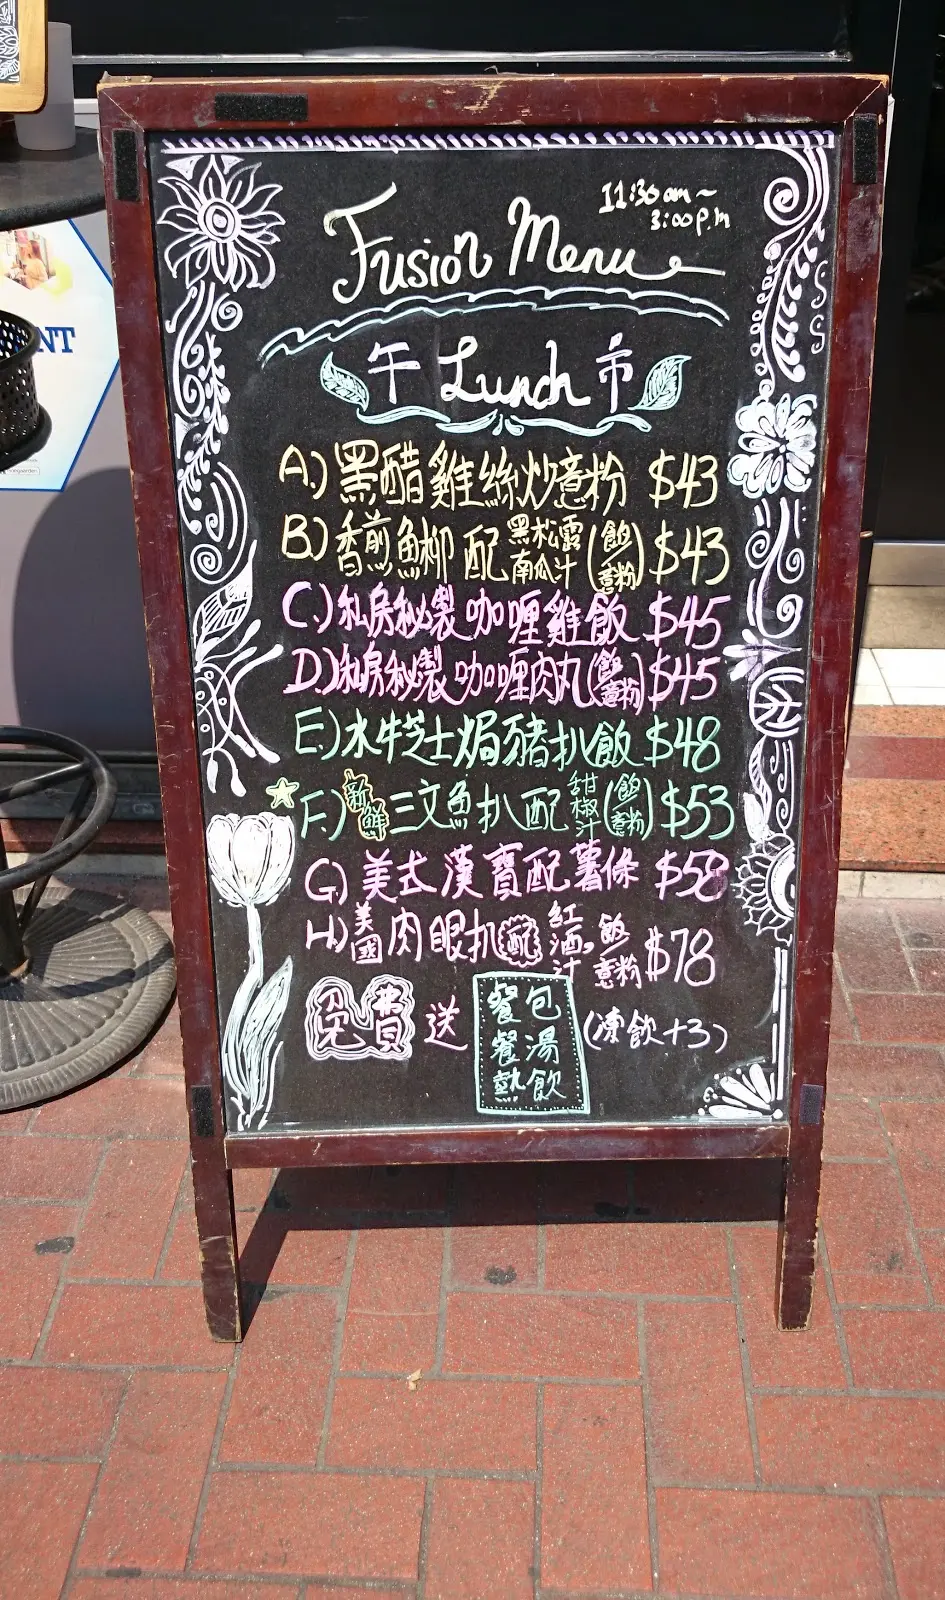 11:30am~
3:00p.m
Fusion Menu
午 Lunch 市
A.) 黑醋雞絲炒意粉 $43
B.) 香煎魚柳配黑松露南瓜汁(飯意粉) $43
C.) 私房秘製咖喱雞飯 $45
D.) 私房秘製咖喱肉丸(飯意粉) $45
E.) 水牛芝士焗豬扒飯 $48
F.) 新鮮三文魚扒配甜椒汁(飯意粉) $53
G.) 美式漢寶配薯條 $58
H.) 美國肉眼扒配紅酒汁 飯意粉 $78
免費送 餐包 餐湯 熱飲 (凍飲+3)
NT